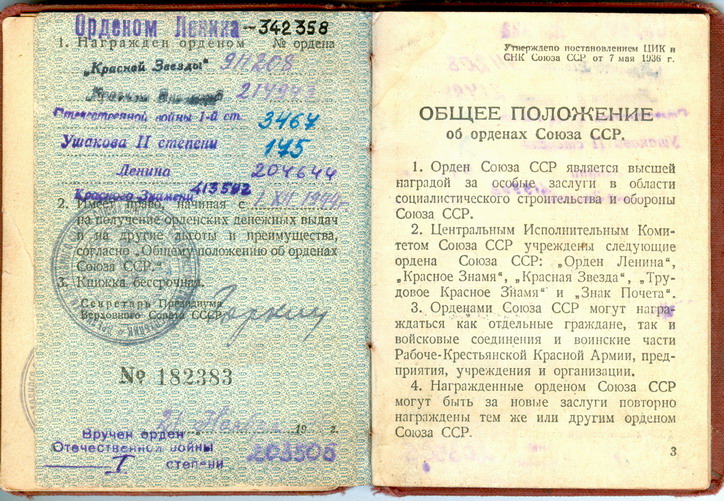 Орденом Ленина – 342358
1. Награжден орденом № ордена
„Красной Звезды" 911208
214947
Отечественной войны 1-й ст. 3467
Ушакова II степени 175
Ленина 204644
Красного Знамени 413592
2. Имеет право, начиная с 1 XII. 1944 г.
на получение орденских денежных выдач
и на другие льготы и преимущества,
согласно „Общему положению об орденах
Союза ССР."
3. Книжка бессрочная.
Секретарь Президиума
Верховного Совета СССР
№ 182383
19 г.
Вручен орден
Отечественной войны
I степени 203506
Утверждено постановлением ЦИК и
СНК Союза ССР от 7 мая 1936 г.
ОБЩЕЕ ПОЛОЖЕНИЕ
об орденах Союза ССР.
1. Орден Союза ССР является высшей
наградой за особые заслуги в области
социалистического строительства и обороны
Союза ССР.
2. Центральным Исполнительным Коми-
тетом Союза ССР учреждены следующие
ордена Союза ССР: „Орден Ленина",
„Красное Знамя", „Красная Звезда", „Тру-
довое Красное Знамя" и „Знак Почета".
3. Орденами Союза ССР могут награ-
ждаться как отдельные граждане, так и
войсковые соединения и воинские части
Рабоче-Крестьянской Красной Армии, пред-
приятия, учреждения и организации.
4. Награжденные орденом Союза ССР
могут быть за новые заслуги повторно
награждены тем же или другим орденом
Союза ССР.
3